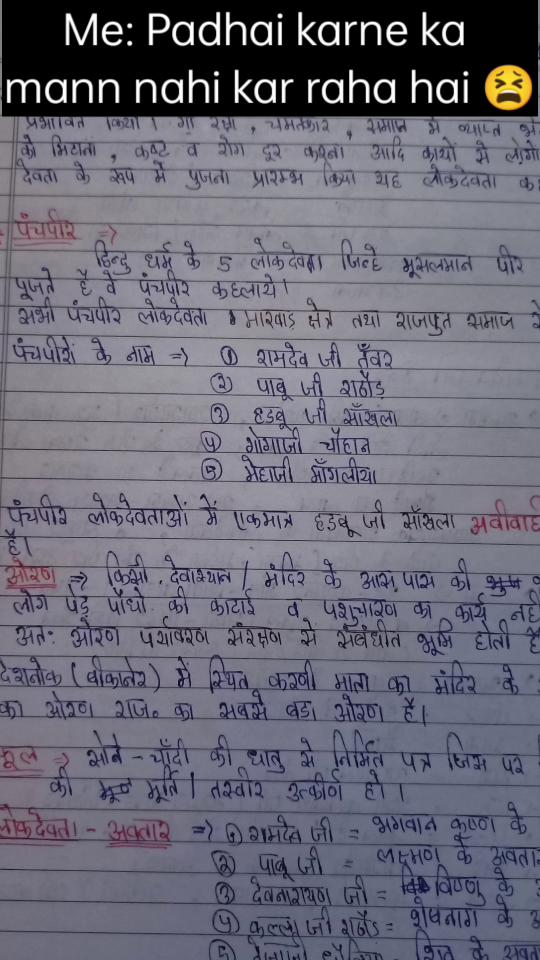 Me: Padhai karne ka
mann nahi kar raha hai 😫
प्रभावित किया। गौ रक्षा, चमत्कार, समाज में व्याप्त
को मिटाना, कष्ट व रोग दूर करना आदि कार्यो से लोगो
देवता के रूप में पुजना प्रारम्भ किया यह लोकदेवता
पंचपीर ⇒
हिन्दु धर्म के 5 लोकदेवता जिन्हे मूसलमान पीर
पूजते है वे पंचपीर कहलाये।
सभी पंचपीर लोकदेवता मारवाड़ क्षेत्र तथा राजपुत समाज से
पंचपीरों के नाम ⇒ ① रामदेव जी तँवर
② पाबू जी राठौड़
③ हडबू जी साँखला
④ गोगाजी चौहान
⑤ मेहाजी माँगलीया
पंचपीर लोकदेवताओं में एकमात्र हडबू जी साँखला
है।
ओरण ⇒ किसी देवास्थान / मंदिर के आस पास की
लोग पेड़ पौधो की काटाई व पशुचारण का कार्य नही
अतः ओरण पर्यावरण संरक्षण से संबंधीत भूमि होती है
देशनोक (बीकानेर) में स्थित करणी माता का मंदिर के
का ओरण राज॰ का सबसे बडा ओरण है।
⇒ सोने - चाँदी की धातु से निर्मित पत्र जिस पर
की मूर्ति / तस्वीर उत्कीर्ण हो।
लोकदेवता - अवतार ⇒ ① रामदेव जी = भगवान कृष्ण के
② पाबू जी = लक्ष्मण के अवतार
③ देवनारायण जी = विष्णु के
④ कल्ला जी राठौड़ = शेषनाग के
⑤